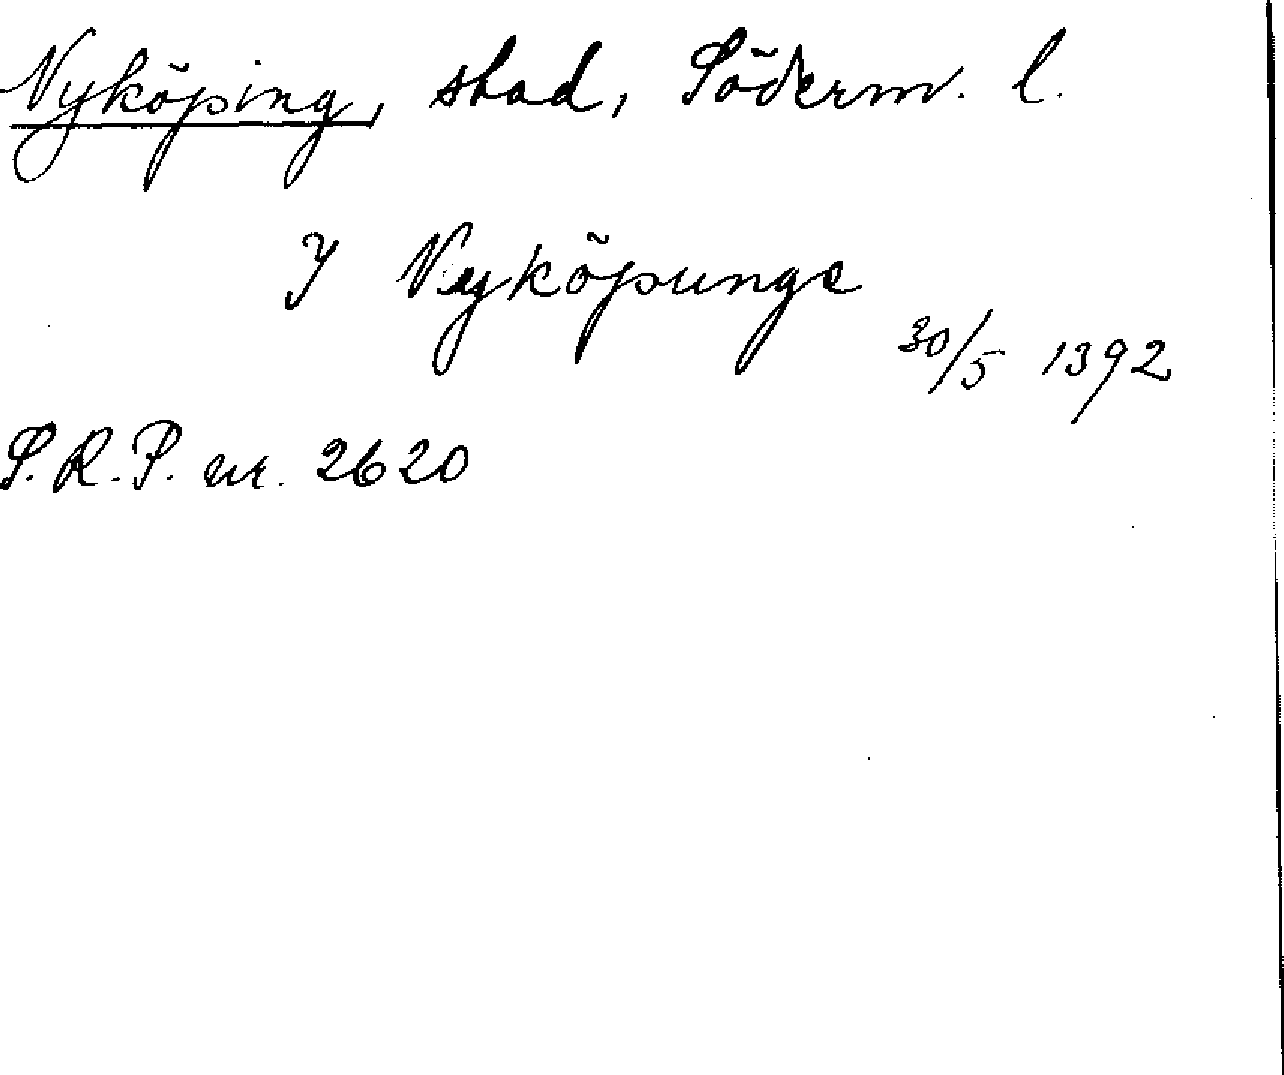 Nyköping, stad, Söderm. l.
J Nyköpunge
30/5 1392
S.R.P. nr. 2620